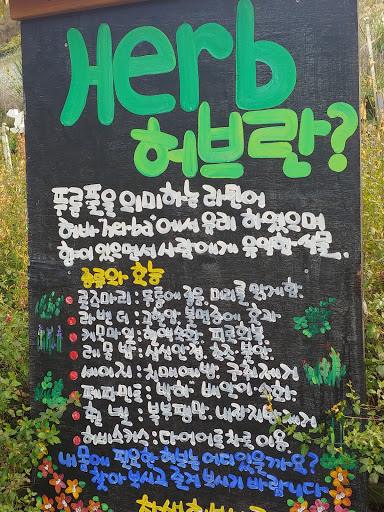 Herb
허브란?
푸른풀을 의미하는 라틴어
허바'herba'에서 유래 하였으며
향이 있으면서 사람에게 유익한 식물.
종류와 효능
로즈마리 : 두통에 좋음, 머리를 맑게함.
라벤더 : 고혈압, 불면증에 효과
캐모마일 : 피로회복
레몬밤 : 심신안정, 초조·불안.
세이지 : 치매예방. 구취제거
페퍼민트 : 박하
펜넬 : 복부팽만. 제거
히비스커스 : 다이어트차로 이용.
내 몸에 필요한 허브는 어디있을까요?
찾아 보시고 즐겨 보시기 바랍니다